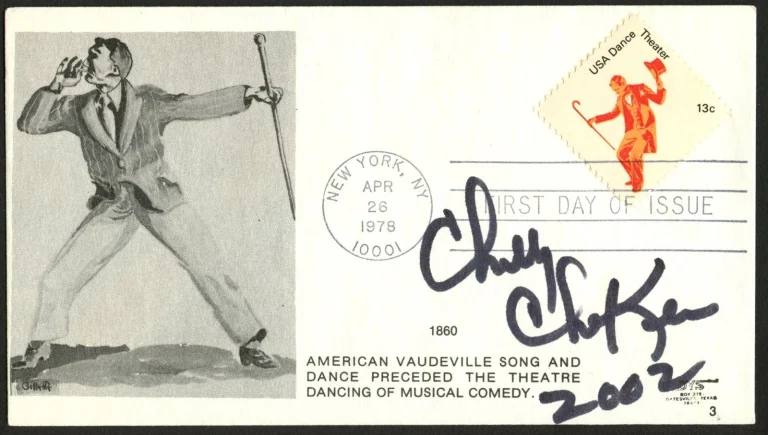 USA Dance Theater
13c
NEW YORK, NY
APR
26
1978
10001
FIRST DAY OF ISSUE
Chubby
Checker
2002
1860
AMERICAN VAUDEVILLE SONG AND
DANCE PRECEDED THE THEATRE
DANCING OF MUSICAL COMEDY.
GATESVILLE, TEXAS
3